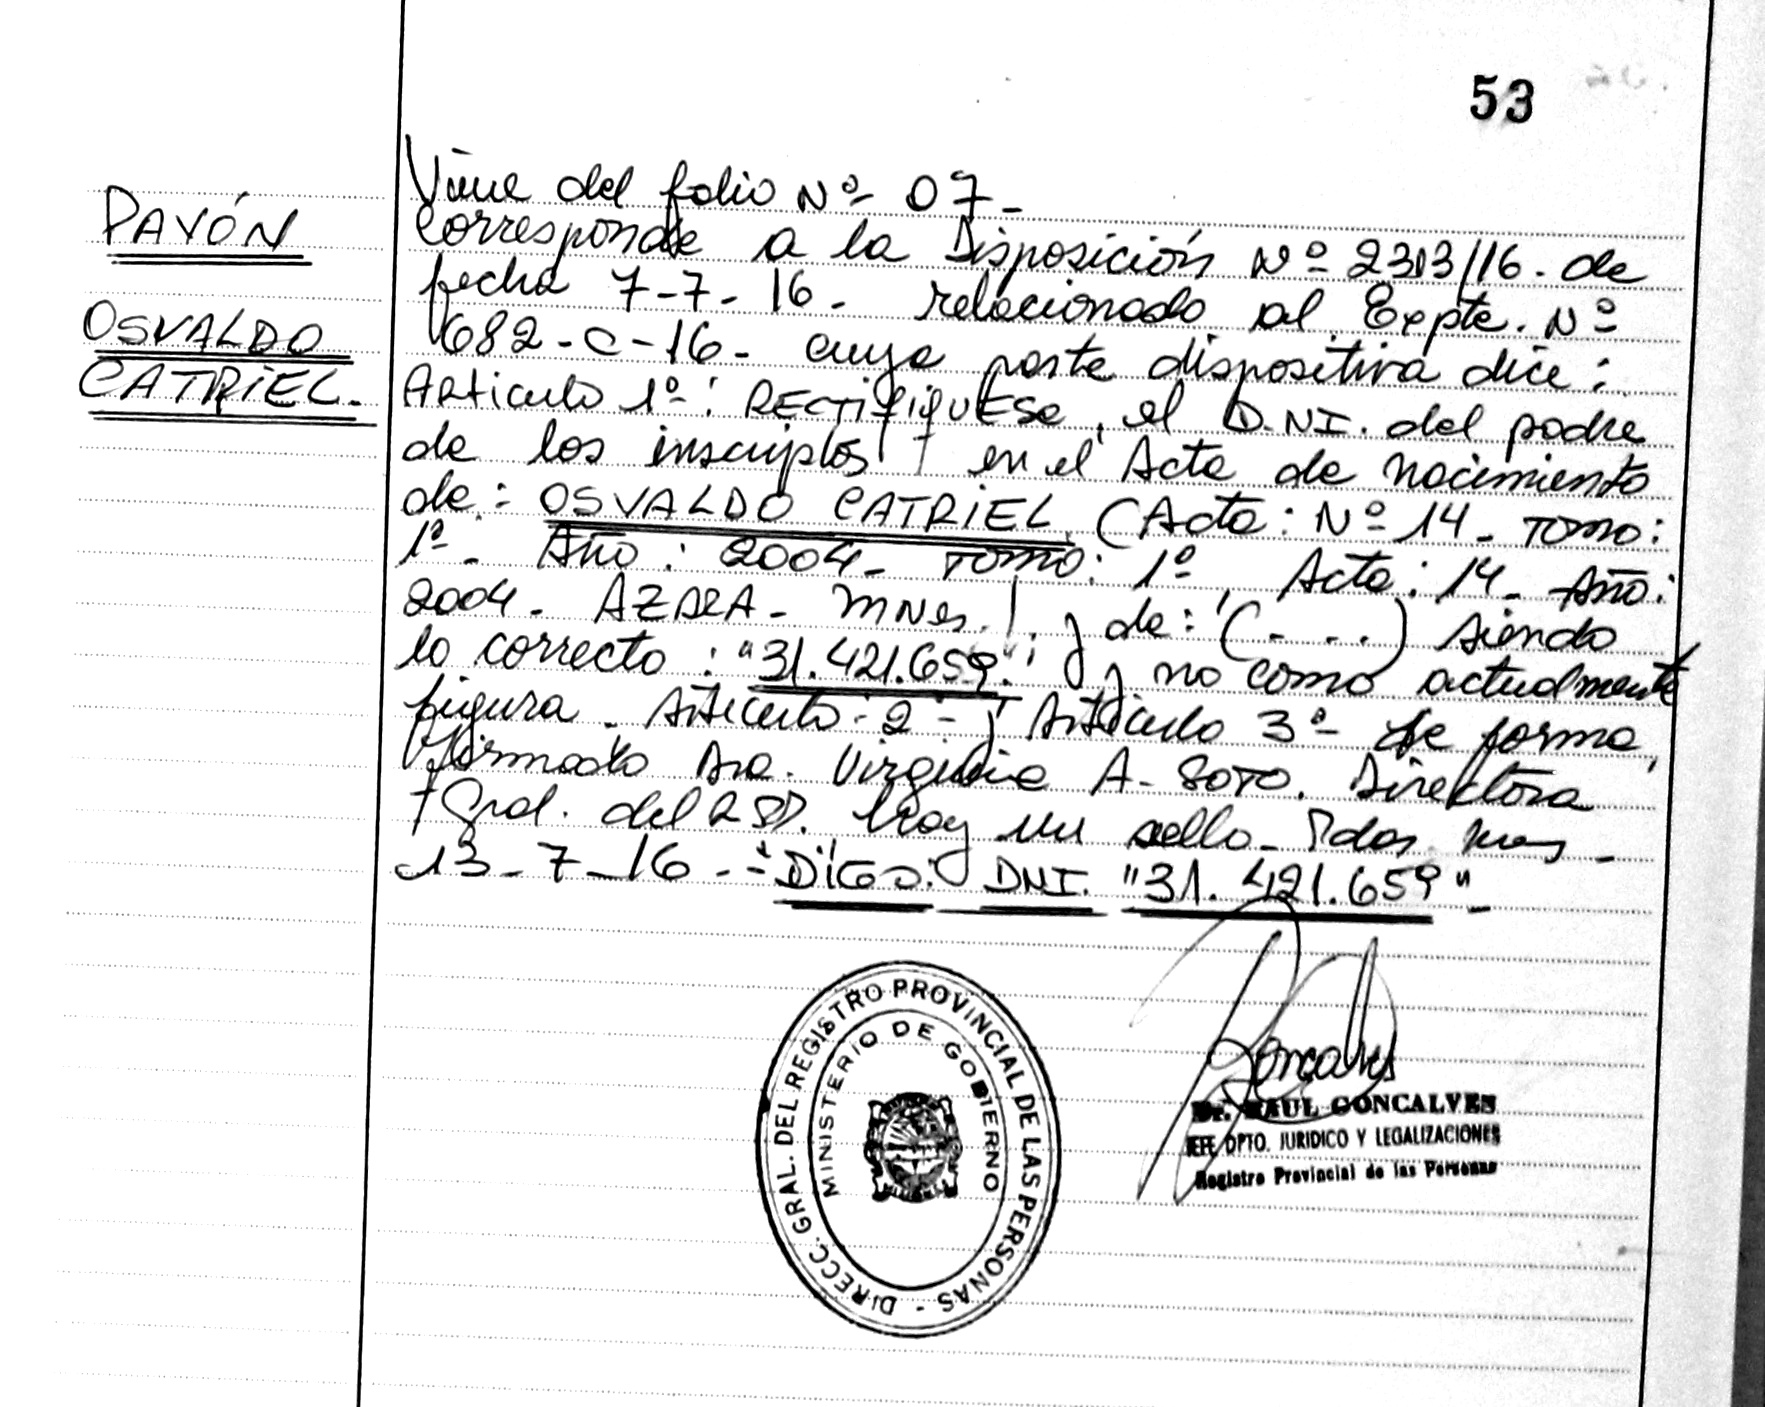 53
PAVÓN
OSVALDO
CATRIEL.
Viene del folio Nº 07-
Corresponde a la Disposición Nº 2313/16. de
fecha 7-7-16- relacionado al Expte. Nº
682-C-16- cuya parte dispositiva dice:
Artículo 1º: RECTIFIQUESE, el D.NI. del padre
de los inscriptos en el Acta de Nacimiento
de: OSVALDO CATRIEL (Acta: Nº 14- TOMO:
1º- Año: 2004- TOMO: 1º, Acta: 14- Año:
2004- AZARA- MNes. y de: (- - -) siendo
lo correcto: "31.421.659"; y no como actualmente
figura. Artículo: 2º- y Artículo 3º- de forma,
firmado Dra. Virginia A- SOTO. Directora
Gral. del RPP. hay un sello- Pdas, Mnes-
13-7-16.-"DIGO: DNI. "31.421.659"-
DIRECC. GRAL. DEL REGISTRO PROVINCIAL DE LAS PERSONAS -
MINISTERIO DE GOBIERNO
Goncalves
Dr. RAUL GONCALVES
JEFE DPTO. JURIDICO Y LEGALIZACIONES
Registro Provincial de las Personas